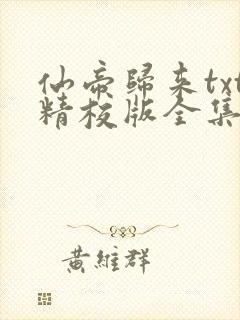 仙帝歸来txt
精校版全集
黃維群